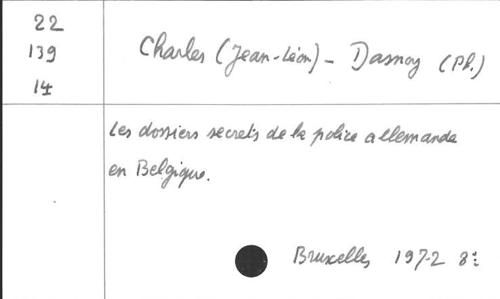 22
139
14
Charles (Jean-Léon) - Dasnoy (Ph.)
Les dossiers secrets de la police allemande
en Belgique.
Bruxelles 1972 8º